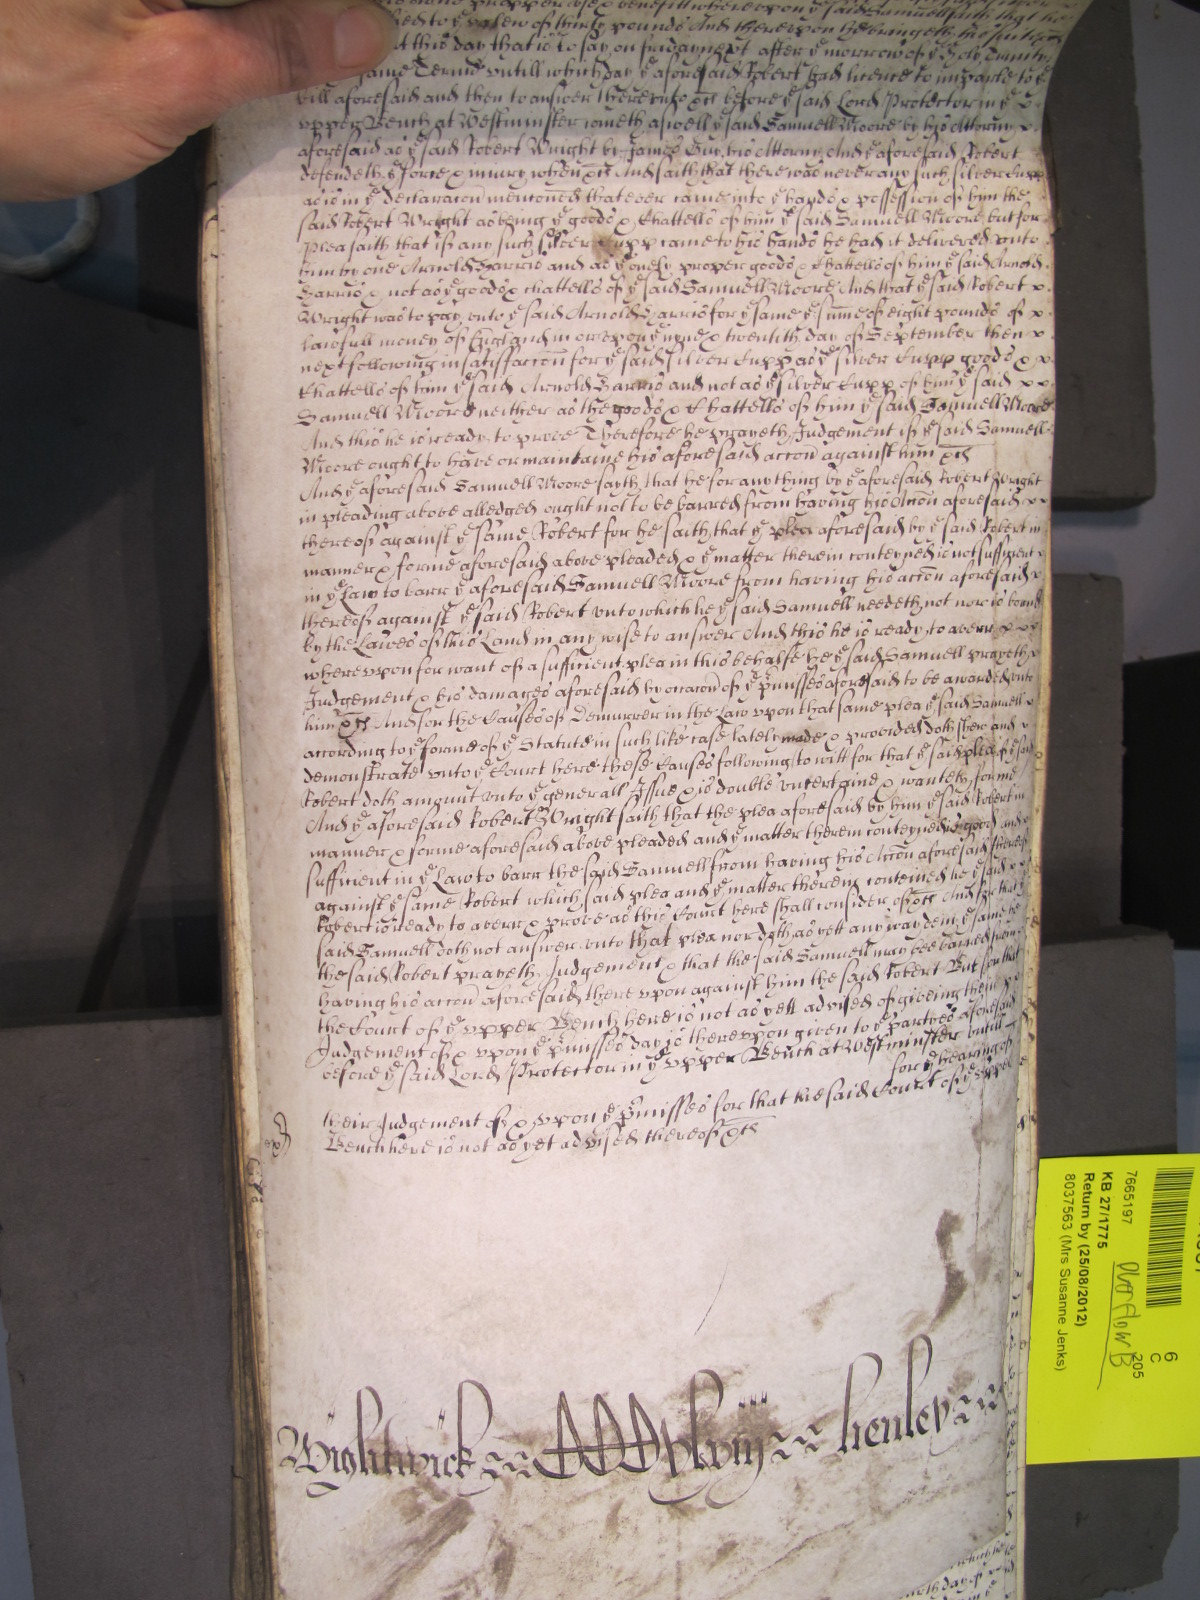 proper use & benefitt whereupon ye said Samuell saith that he
ed to ye valew of thirty pounds And thereupon he bringeth his suit
t this day that is to say on fryday next after ye morrow of ye holy Trinity
same Terme untill which day ye aforesaid Robert had licence to imparle to ye
bill aforesaid and then to answer thereunto &c before ye said Lord Protector in ye
upper Bench at Westminster cometh aswell ye said Samuell Moore by his Attorny
aforesaid as ye said Robert Wright by James Guy his Attorny And ye aforesaid Robert
defendeth ye force & iniury when &c And saith that there was never any such silver Cupp
as is in ye declaracon mentioned that ever came into ye hands & possession of him the
said Robert Wright as being ye goods & Chattells of him ye said Samuell Moore but for
plea saith that if any such silver Cupp came to his hands he had it delivered unto
him by one Arnold Harris and as ye onely proper goods & Chattells of him ye said Arnold
Harris & not as ye goods & chattells of ye said Samuell Moore And that ye said Robert x
Wright was to pay unto ye said Arnold Harris for ye same ye summe of eight pounds of x
lawfull money of England in or upon ye nyne & twentith day of September then x
next following in satisfaccon for ye said silver Cupp as ye silver Cupp goods & x
Chattells of him ye said Arnold Harris and not as ye silver Cupp of him ye said x x
Samuell Moore neither as the goods & Chattells of him ye said Samuell Moore
And this he is ready to prove Therefore he prayeth Judgement if ye said Samuell
Moore ought to have or maintaine his aforesaid accon against him &c
And ye aforesaid Samuell Moore sayth that he for anything by ye aforesaid Robert Wright
in pleading above alledged ought not to be barred from having his Accon aforesaid x x
thereof against ye same Robert for he saith that ye plea aforesaid by ye said Robert in
manner & forme aforesaid above pleaded & ye matter therein conteyned is not sufficient
in ye Law to barr ye aforesaid Samuell Moore from having his accon aforesaid x
thereof against ye said Robert unto which he ye said Samuell needeth not nor is bound
by the Lawes of this Land in any wise to answer And this he is ready to averr x x x
whereupon for want of a sufficient plea in this behalfe he ye said Samuell prayeth
Judgement & his damages aforesaid by occacon of ye pmisses aforesaid to be awarded unto
him &c And for the Causes of Demurrer in the Law upon that same plea ye said Samuell x
according to ye forme of ye Statute in such like case lately made & provided doth shew and x
demonstrate unto ye Court here these Causes following to witt for that ye said plea of ye said
Robert doth amount unto ye generall Issue & is double uncertaine & wanteth forme
And ye aforesaid Robert Wright saith that the plea aforesaid by him ye said Robert in
manner & forme aforesaid above pleaded and ye matter therein conteyned is good and x
sufficient in ye Law to barr the said Samuell from having his Accon aforesaid thereof
against ye same Robert which said plea and ye matter therein conteined he ye said x
Robert is ready to averr & prove as this Court here shall consider of &c And for that ye
said Samuell doth not answer unto that plea nor doth as yett any way deny ye same he
the said Robert prayeth Judgement & that the said Samuell may bee barred from
having his accon aforesaid there upon against him the said Robert But for that
the Court of ye upper Bench here is not as yett advised of giveing their
Judgement of & upon ye pmisses day is thereupon given to ye partyes aforesaid
before ye said Lord Protector in ye upper Bench at Westminster untill
for ye hearing of
their Judgement of & upon ye pmisses for that the said Court of ye upper
Bench here is not as yet advised thereof &c
Wightwick
henley
7665197
KB 27/1775
Return by (25/08/2012)
8037563 (Mrs Susanne Jenks)
6
C
205